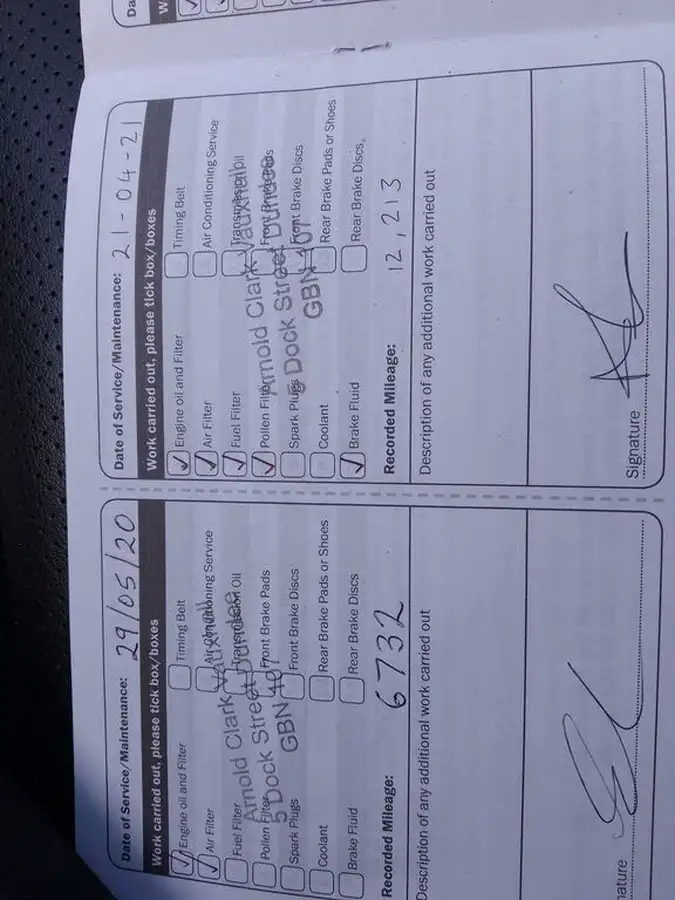 Date of Service/Maintenance: 29/05/20
Work carried out, please tick box/boxes
Engine oil and Filter
Timing Belt
Air Filter
Air Conditioning Service
Fuel Filter
Transmission Oil
Pollen Filter
Front Brake Pads
Spark Plugs
Front Brake Discs
Coolant
Rear Brake Pads or Shoes
Brake Fluid
Rear Brake Discs
Arnold Clark Vauxhall
5 Dock Street Dundee
GBN 107
Recorded Mileage: 6732
Description of any additional work carried out
nature
Date of Service/Maintenance: 21-04-21
Work carried out, please tick box/boxes
Engine oil and Filter
Timing Belt
Air Filter
Air Conditioning Service
Fuel Filter
Transmission Oil
Pollen Filter
Front Brake Pads
Spark Plugs
Front Brake Discs
Coolant
Rear Brake Pads or Shoes
Brake Fluid
Rear Brake Discs
Arnold Clark Vauxhall
5 Dock Street Dundee
GBN 107
Recorded Mileage: 12,213
Description of any additional work carried out
Signature
Da
W